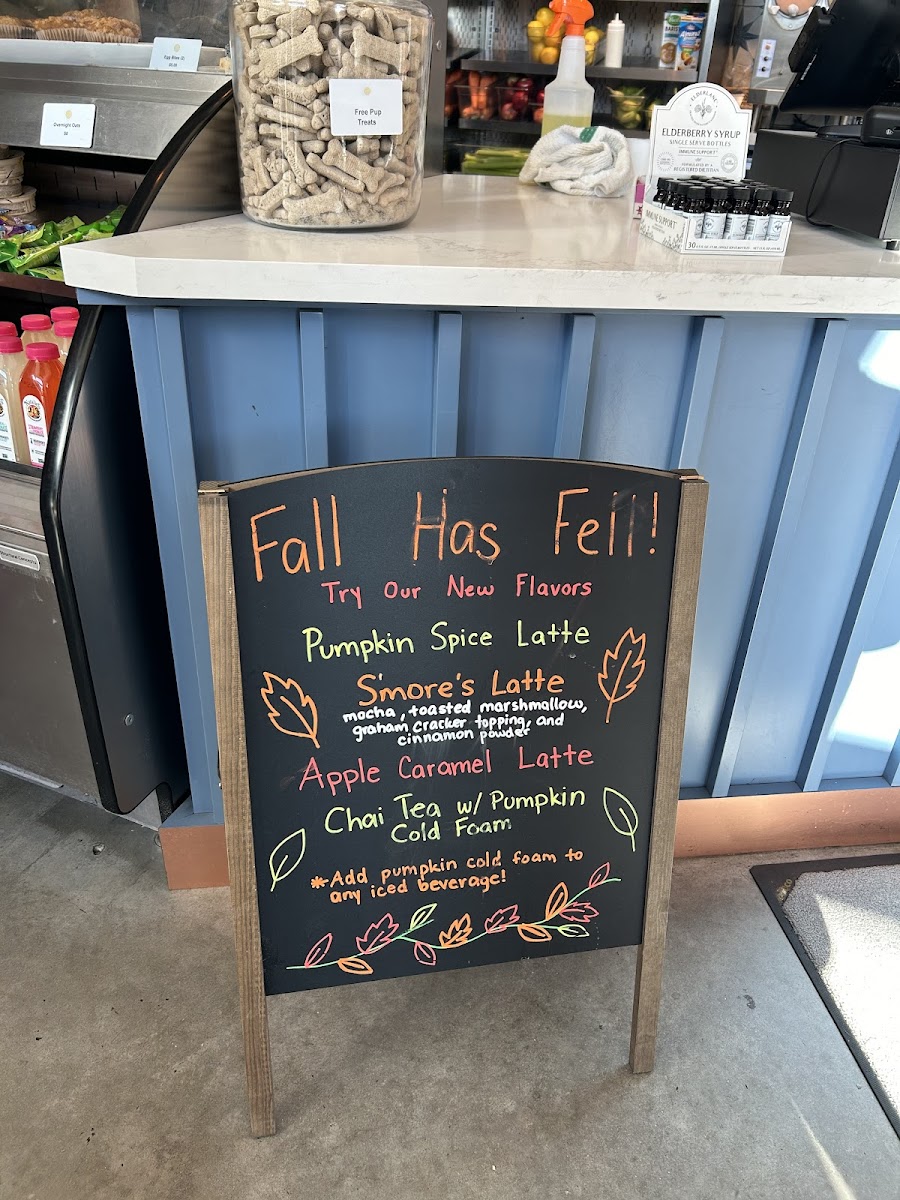 Egg Bites (2)
Overnight Oats
$6
Free Pup
Treats
ELDERBERRY SYRUP
SINGLE SERVE BOTTLES
IMMUNE SUPPORT
REGISTERED DIETITIAN
IMMUNE SUPPORT
30
Fall Has Fell!
Try Our New Flavors
Pumpkin Spice Latte
S'more's Latte
mocha, toasted marshmallow,
graham cracker topping, and
cinnamon powder
Apple Caramel Latte
Chai Tea w/ Pumpkin
Cold Foam
*Add pumpkin cold foam to
any iced beverage!